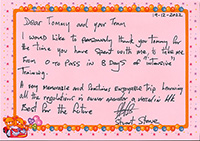 19-12-2022
Dear Tommy and your Team
I would like to personally thank you Tommy for
the time you have spent with me, to take me
From 0 to Pass in 8 Days of "Intensive"
Training.
A very Memorable and Enjoyable Trip Learning
all the regulations in owner operator a vessel in HK
Best For the Future
Stuart